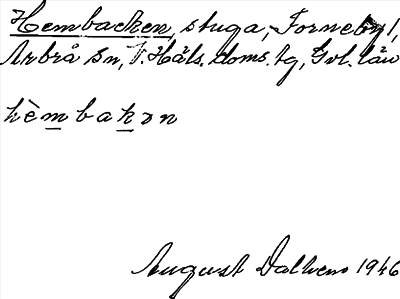 Hembacken, stuga, Forneby,
Arbrå sn, V. Häls. doms. tg, Gvl. län
hèmbakən
August Dalhem 1946